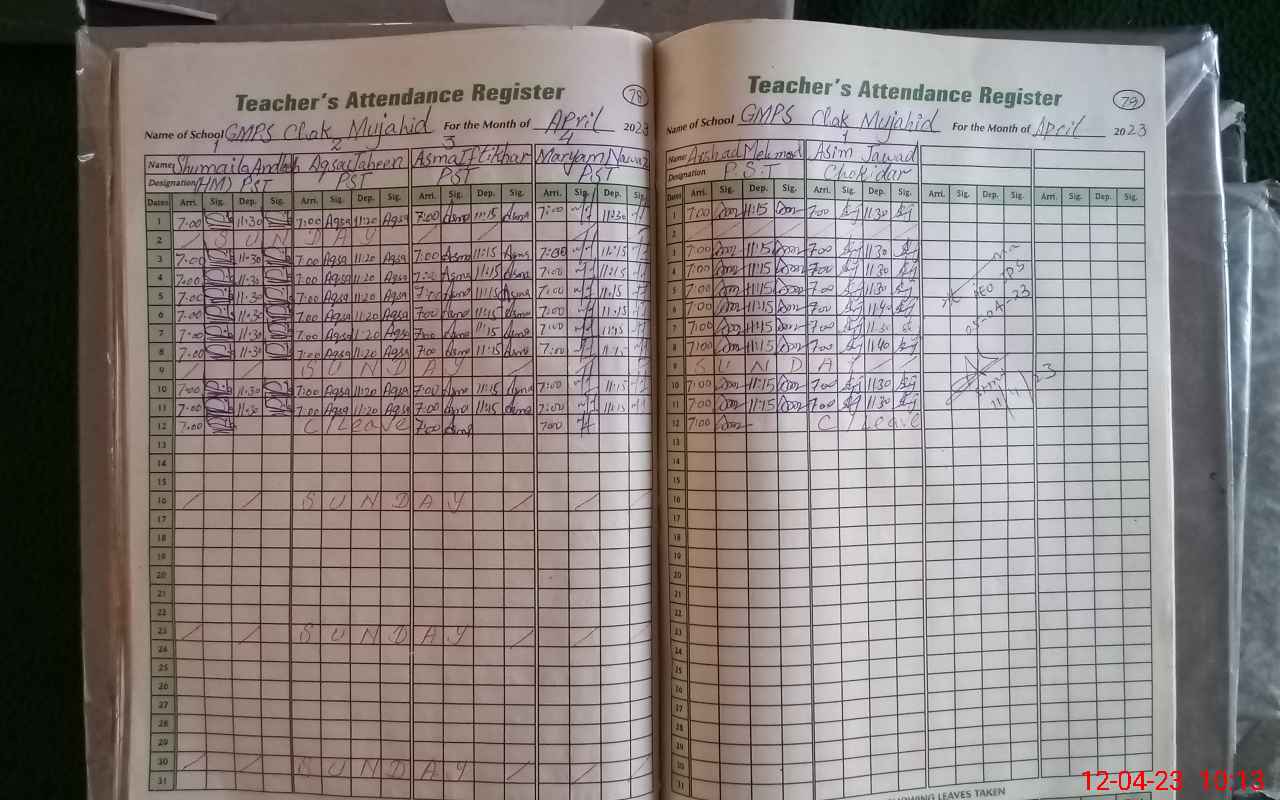 Teacher's Attendance Register
78
Name of School GMPS Chak Mujahid For the Month of April 2023
1 2 3 4
Name Shumaila Andleeb Aqsa Jabeen Asma Iftikhar Maryam Nawaz
Designation (HM) PST PST PST PST
Dates Arri. Sig. Dep. Sig. Arri. Sig. Dep. Sig. Arri. Sig. Dep. Sig. Arri. Sig. Dep. Sig.
1 7:00 11:30 7:00 Aqsa 11:20 Aqsa 7:00 Asma 11:15 Asma 7:00 11:30
2 SUNDAY
3 7:00 11:30 7:00 Aqsa 11:20 Aqsa 7:00 Asma 11:15 Asma 7:00 11:15
4 7:00 11:30 7:00 Aqsa 11:20 Aqsa 7:00 Asma 11:15 Asma 7:00 11:15
5 7:00 11:30 7:00 Aqsa 11:20 Aqsa 7:00 Asma 11:15 Asma 7:00 11:15
6 7:00 11:30 7:00 Aqsa 11:20 Aqsa 7:00 Asma 11:15 Asma 7:00 11:15
7 7:00 11:30 7:00 Aqsa 11:20 Aqsa 7:00 Asma 11:15 Asma 7:00 11:15
8 7:00 11:30 7:00 Aqsa 11:20 Aqsa 7:00 Asma 11:15 Asma 7:00 11:15
9 SUNDAY
10 7:00 11:30 7:00 Aqsa 11:20 Aqsa 7:00 Asma 11:15 Asma 7:00 11:15
11 7:00 11:30 7:00 Aqsa 11:20 Aqsa 7:00 Asma 11:15 Asma 7:00 11:15
12 7:00 C/Leave 7:00 Asma 7:00
13
14
15
16 SUNDAY
17
18
19
20
21
22
23 SUNDAY
24
25
26
27
28
29
30 SUNDAY
31
Teacher's Attendance Register
79
Name of School GMPS Chak Mujahid For the Month of April 2023
1
Name Arshad Mehmood Asim Jawad
Designation P.S.T Chokidar
Dates Arri. Sig. Dep. Sig. Arri. Sig. Dep. Sig. Arri. Sig. Dep. Sig. Arri. Sig. Dep. Sig.
1 7:00 11:15 7:00 11:30
2
3 7:00 11:15 7:00 11:30
4 7:00 11:15 7:00 11:30
5 7:00 11:15 7:00 11:30
6 7:00 11:15 7:00 11:40
7 7:00 11:15 7:00 11:30
8 7:00 11:15 7:00 11:40
9 SUNDAY
10 7:00 11:15 7:00 11:30
11 7:00 11:15 7:00 11:30
12 7:00 C/Leave
13
14
15
16
17
18
19
20
21
22
23
24
25
26
27
28
29
30
31
05-04-23
11/4/23
SHOWING LEAVES TAKEN
12-04-23 10:13